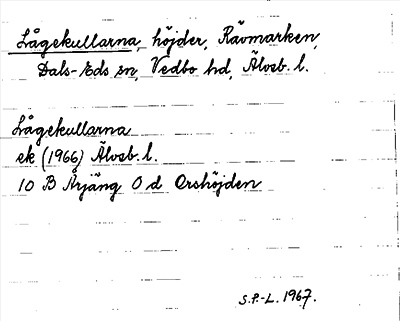 Lågekullarna, höjder, Rävmarken,
Dals-Eds sn, Vedbo hd, Älvsb. l.
Lågekullarna
ek (1966) Älvsb. l.
10 B Årjäng O d Orshöjden
S.P.-L. 1967.